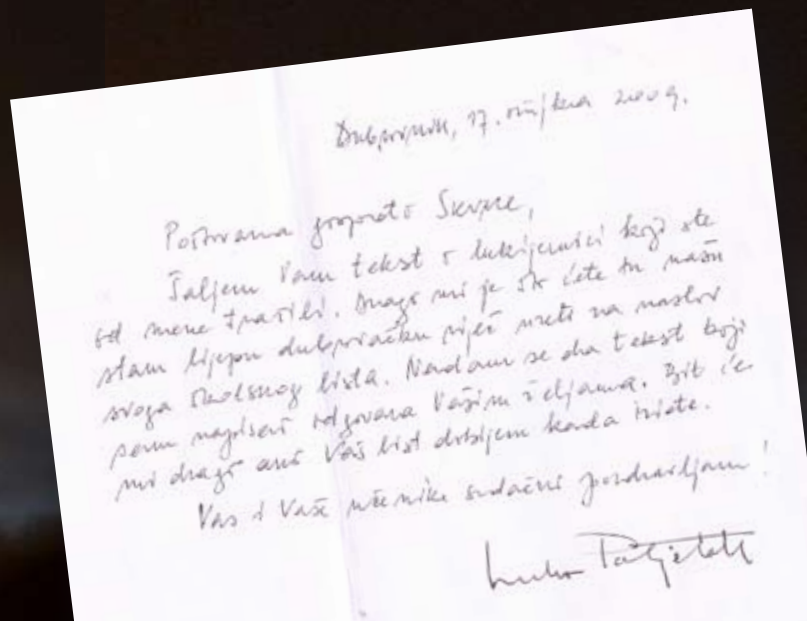 Dubrovnik, 17. ožujka 2009.
Poštovana gospođo
Šaljem Vam tekst o lukijernici koji ste
od mene tražili. Drago mi je što ćete tu našu
staru lijepu dubrovačku riječ uzeti na naslov
svoga školskog lista. Nadam se da tekst koji
sam napisao odgovara Vašim željama. Bit će
mi drago ako Vaš list dobijem kada iziđe.
Vas i Vaše učenike srdačno pozdravljam!
Luko Paljetak